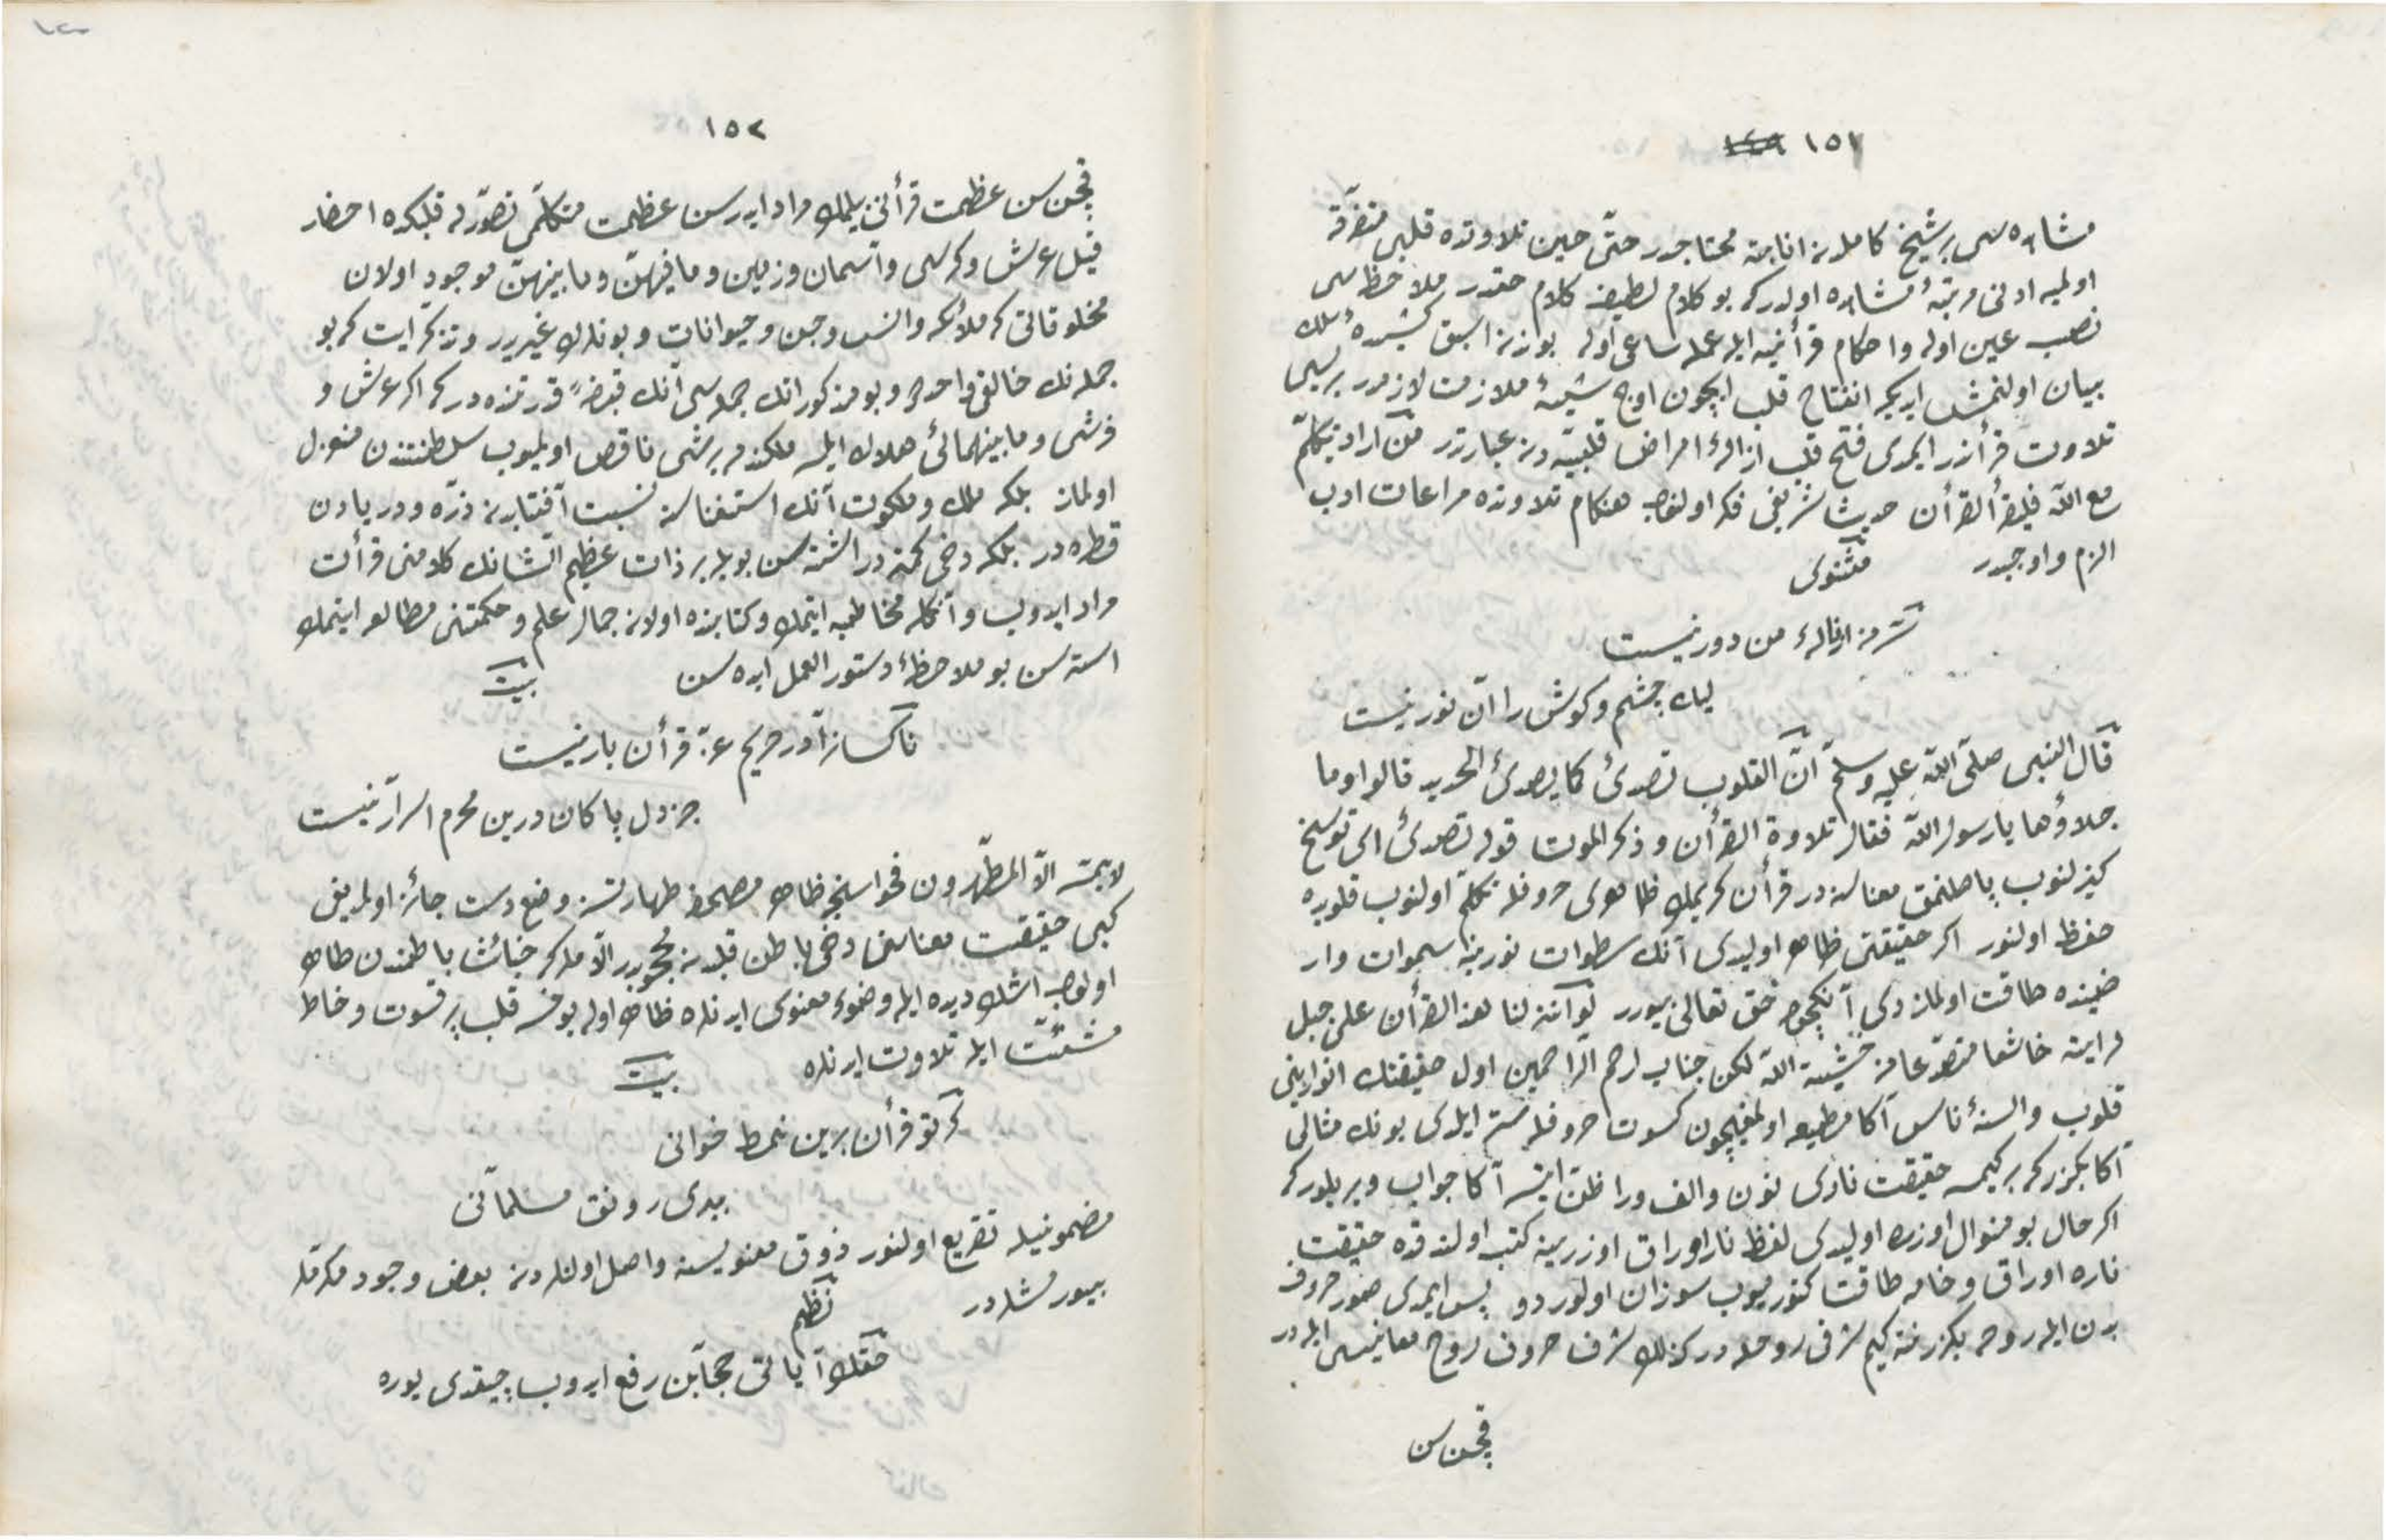 ١٥١
مشاهده سی بر شیخ کامله انابته محتاجدر حتی حین تلاوتده قلبی متفرقه
اولمیه ادنی مرتبۀ مشاهده اولدرکه بو کلام لطیف کلام حقدر ملاحظه سی
نصب عین اوله و احکام قرأنیه ایله عمله ساعی اوله بوندن اسبق
بیان اولنمش ایدیکه انفتاح قلب ایچون اوچ شیئه ملازمت لازمدر بریسی
تلاوت قرأندر ایمدی فتح قلب ازالۀ امراض قلبیه دن عبارتدر من اراد تکلم
مع الله فلیقرأ القرأن حدیث شریفی فکر اولنوب هنکام تلاوتده مراعات ادب
الزم و اوجبدر مثنوی
سر من از نالۀ من دور نیست
لیك چشم و کوش را آن نور نیست
قال النبی صلی الله علیه وسلم ان القلوب تصدئ کما یصدئ الحدید قالوا وما
جلاؤها یا رسول الله فقال تلاوة القرأن و ذکر الموت قوله تصدئ ای توسخ
کیزلنوب پاصلنمق معناسنه در قرأن کریمك ظاهری حروفله تکلم اولنوب قلوبده
حفظ اولنور اکر حقیقتی ظاهر اولیدی آنك سطوات نورینه سموات و ار
ضینده طاقت اولمازدی آنکچون حق تعالی بیورر لو انزلنا هذا القرأن علی جبل
لرایته خاشعا متصدعا من خشیة الله لکن جناب ارحم الراحمین اول حقیقتك انوارینی
قلوب و السنۀ ناس آکا مطیعه اولمغیچون کسوت حروفله ستر ایلدی بونك مثالی
آکا بکزرکه بر کیمسه حقیقت ناردی نون و الف و را ظن ایتسه آکا جواب ویریلورکه
اکر حال بو منوال اوزره اولیدی لفظ نار اوراق اوزرینه کتب اولندقده حقیقت
ناره اوراق و خامه طاقت کتورمیوب سوزان اولوردی پس ایمدی صور حروف
بدن ایله روحه بکزر نته کیم شرف روحله در کذلك شرف حروف روح معانیسی ایله در
قچن سن
١٥٢
قچن سن عظمت قرأنی بیلمك مراد ایدرسن عظمت متکلمی تصور له قلبکده احضار
قیل عرش و کرسی و آسمان و زمین و ما فیهن و ما بینهن موجود اولان
مخلوقاتی که ملائکه و انس و جن و حیوانات و بونلرك غیریدر و تذکر ایت که بو
جمله نك خالقی واحددر و بو مذکوراتك جمله سی آنك قبضۀ قدرتنده در که اکر عرش و
فرشی و ما بینهمائی هلاك ایلسه ملکنده بر شی ناقص اولمیوب سلطنتندن معزول
اولماز بلکه ملك و ملکوت آنك استغناسنه نسبت آفتابدن ذره و دریادن
قطره در بلکه دخی کمتدر اشته سن بویله بر ذات عظیم الشانك کلامنی قرأت
مراد ایدوب و آنکله مخاطبه ایتمك و کتابنده اولان جمال علم و حکمتنی مطالعه ایتمك
استرسن بو ملاحظۀ دستور العمل ایده سن بیت
ناکسانرا در حریم عزت قرأن بار نیست
جز دل پاکان درین محرم اسرار نیست
لا یمسه الا المطهرون فحواسنجه ظاهر مصحفه طهارتسز وضع دست جائز اولمدیغی
کبی حقیقت معناسی دخی باطن قلبدن محجوبدر الا مکر خبائث باطندن طاهر
اولوب اشك دیده ایله وضوء معنوی ایدنلره ظاهر اوله بوخسه قلب پر قسوت و خاطر
مشتت ایله تلاوت ایدنلره بیت
کر تو قرأن برین نمط خوانی
ببری رونق مسلمانی
مضمونیله تقریع اولنور ذوق معنویسنه واصل اولنلردن بعض وجود مکرمه
بیورمشلردر نظم
حقك آیاتی حجابن رفع ایدوب چیقدی یوره